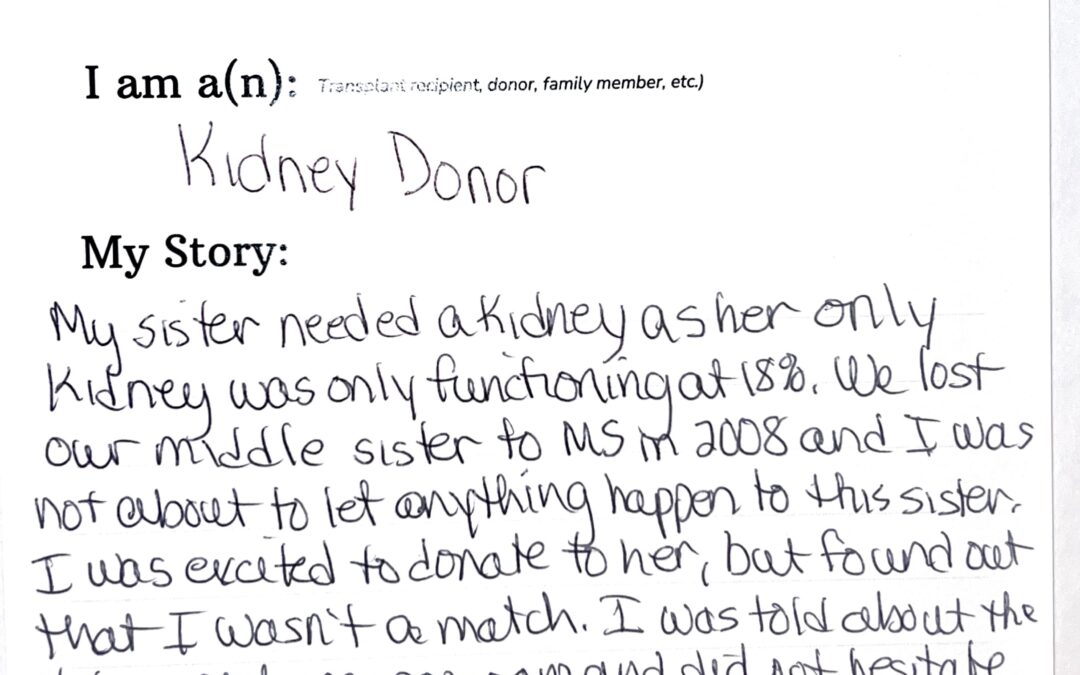 I am a(n): Transplant recipient, donor, family member, etc.)
Kidney Donor
My Story:
My sister needed a Kidney as her only
Kidney was only functioning at 18%. We lost
our middle sister to MS in 2008 and I was
not about to let anything happen to this sister.
I was excited to donate to her, but found out
that I wasn't a match. I was told about the
and did not hesitate